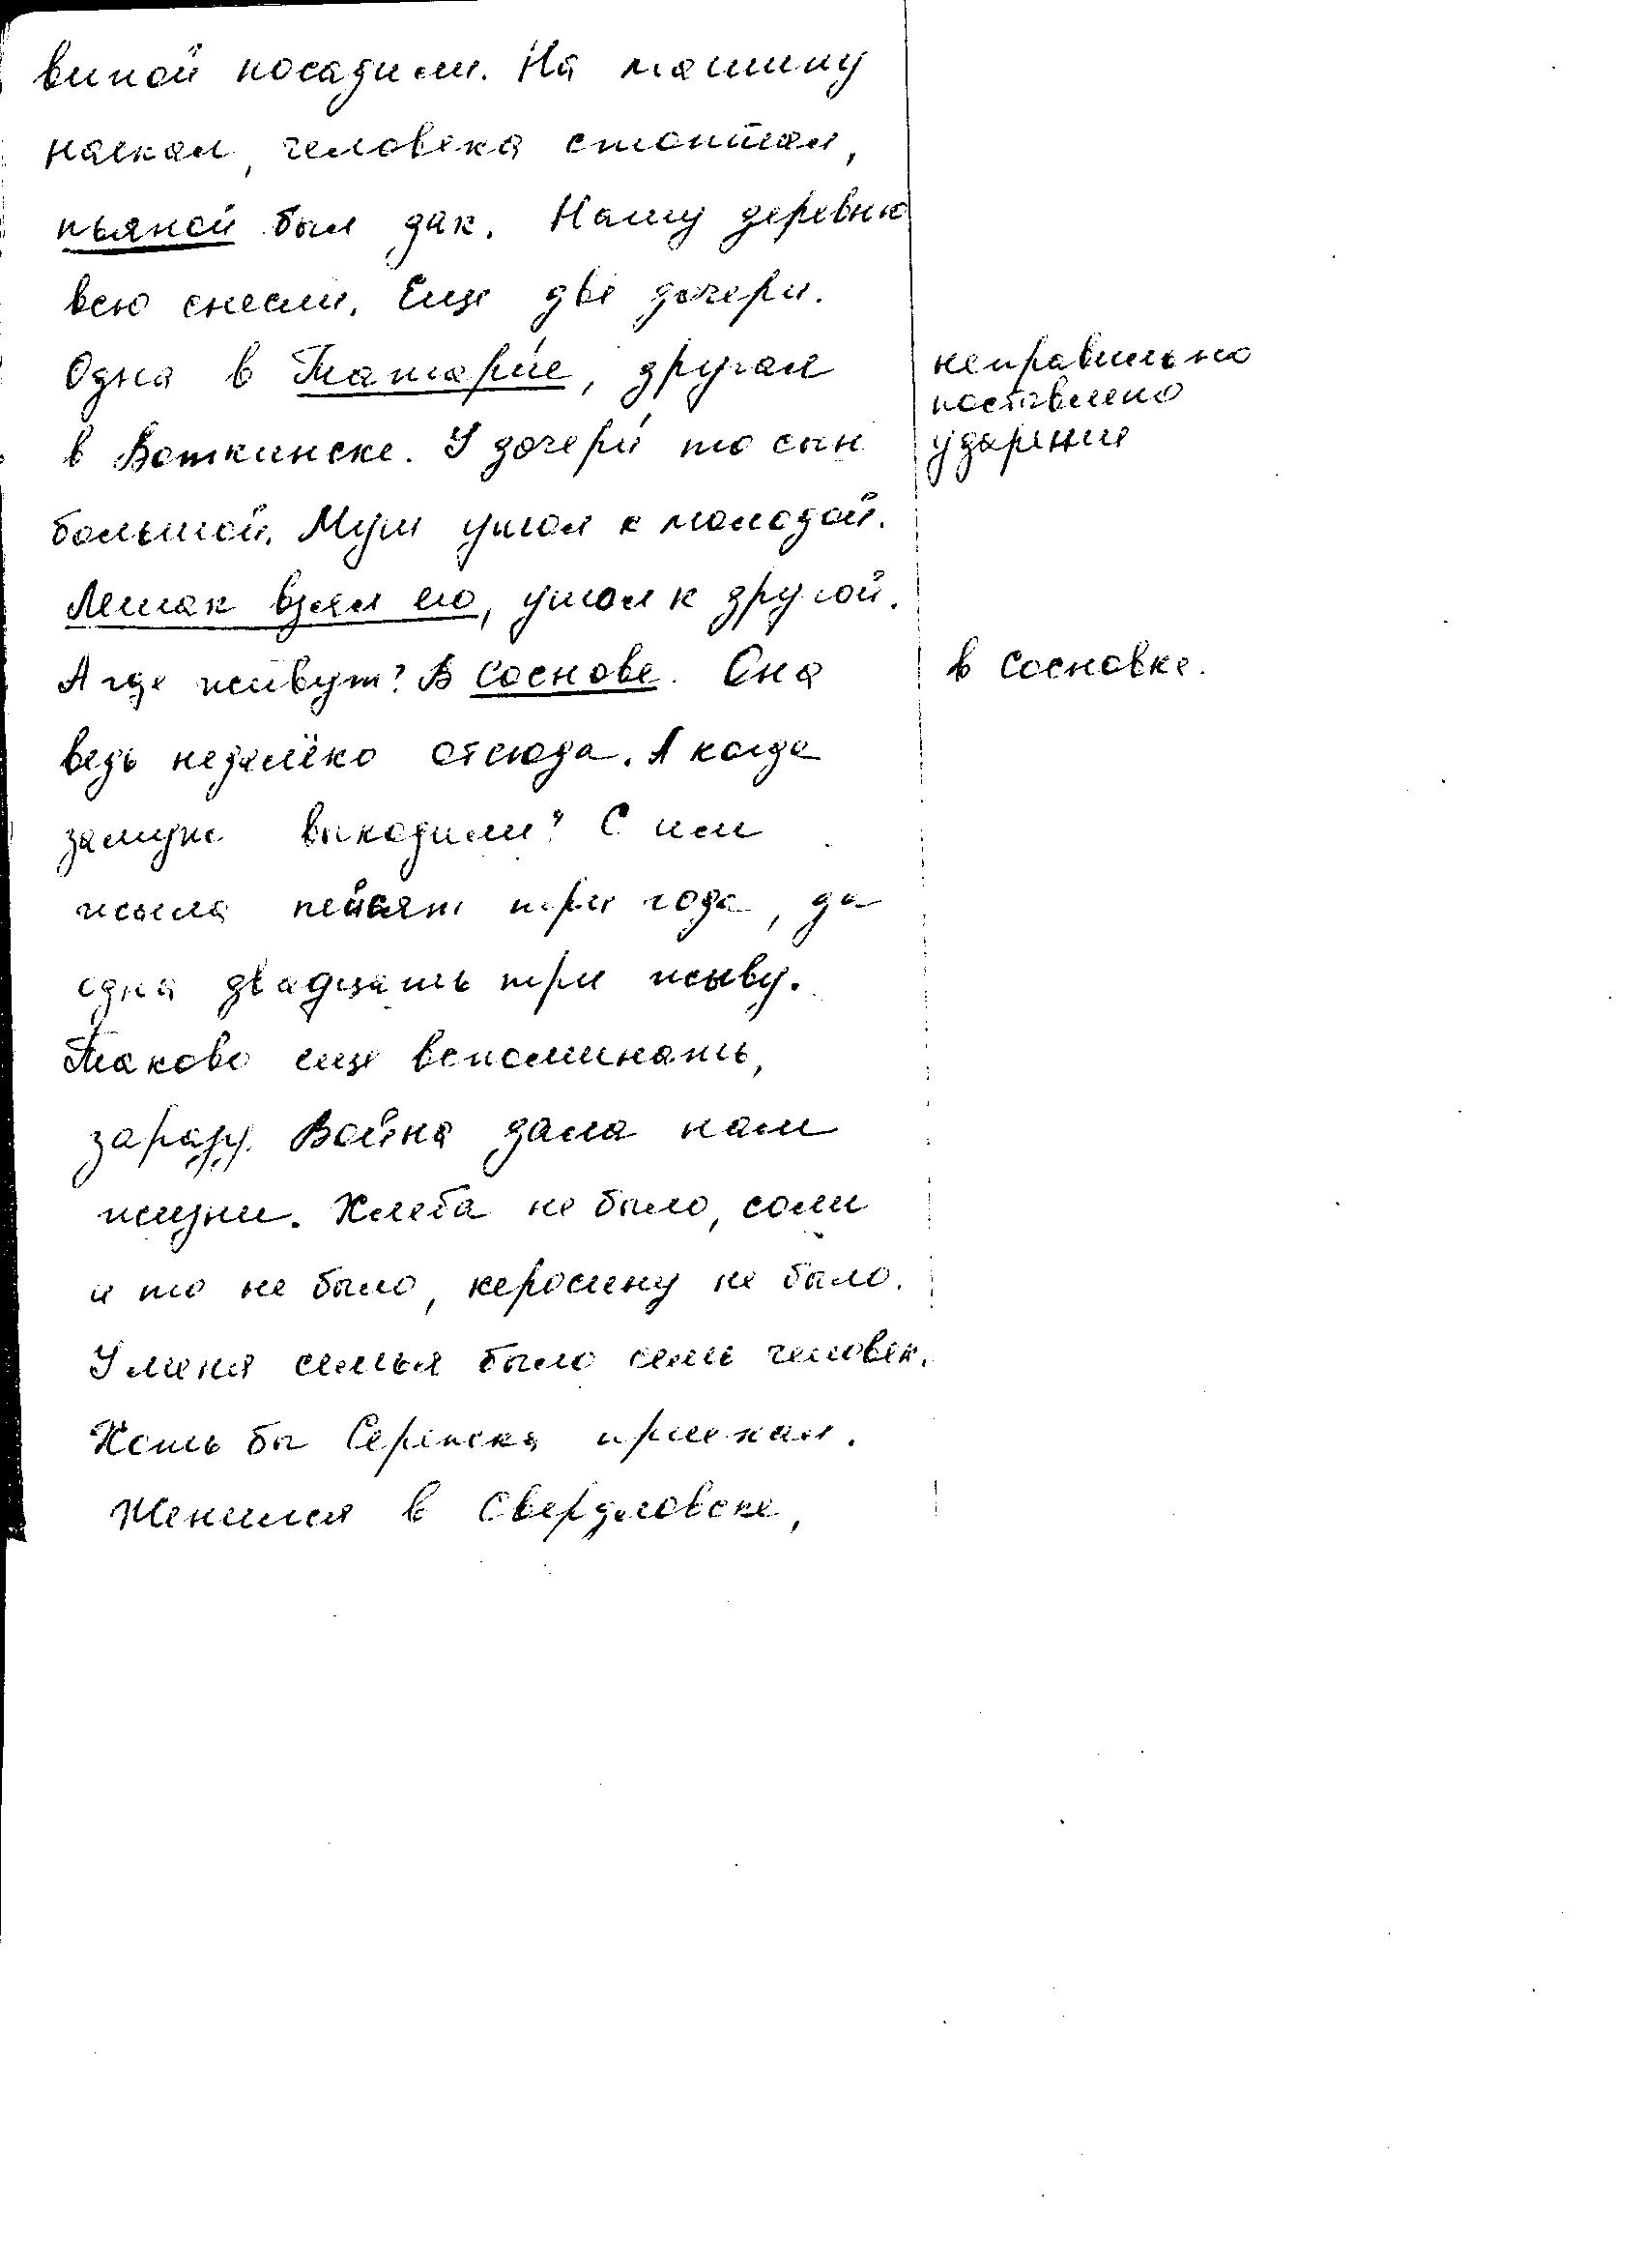 виной посадили. На машину
наехал, человека стоптал,
пьяной был дак. Нашу деревню
всю снесли. Еще две дочери.
Одна в Татари́е, другая
в Воткинске. У дочери́ то сын
большой. Муж ушол к молодой.
Лешак взял ево, ушол к другой.
А где живут? В Соснове. Она
ведь недалёко отсюда. А когда
замуж выходили? С им
жыла пейсят три года, да
одна двадцать три жыву.
Таково еще вспоминать,
заразу. Война дала нам
жизни. Хлеба не было, соли
и то не было, керосину не было.
У меня семья было семь человек.
Хоть бы Сережка приехал.
Женился в Свердловске,
неправильно
поставлено
ударение
в Сосновке.